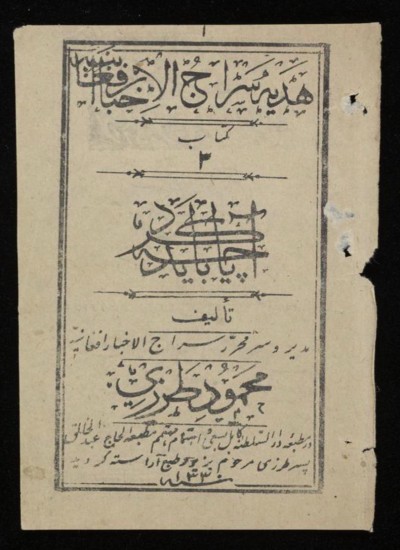 هدیهٔ سراج الاخبار افغانیه
کتاب
۳
چه باید کرد
تألیف
مدیر و سر محرر سراج الاخبار افغانیه
محمود طرزی
در مطبعه دار السلطنه کابل بسعی و اهتمام مهتمم مطبعه الحاج عبدالخالق
پسر طرزی مرحوم بزیور طبع آراسته گردید
سنه ۱۳۳۰